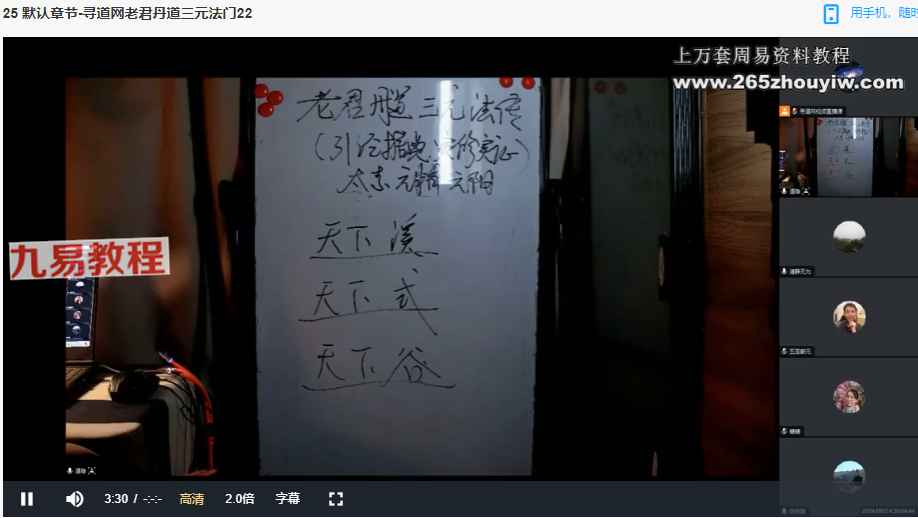 25 默认章节-寻道网老君丹道三元法门22
用手机，随时
上万套周易资料教程
www.265zhouyiw.com
老君丹道三元法传
（引论据典 实修实证）
太素元精元阳
天下溪
天下式
天下谷
九易教程
3:30 / -:-:-
高清
2.0倍
字幕